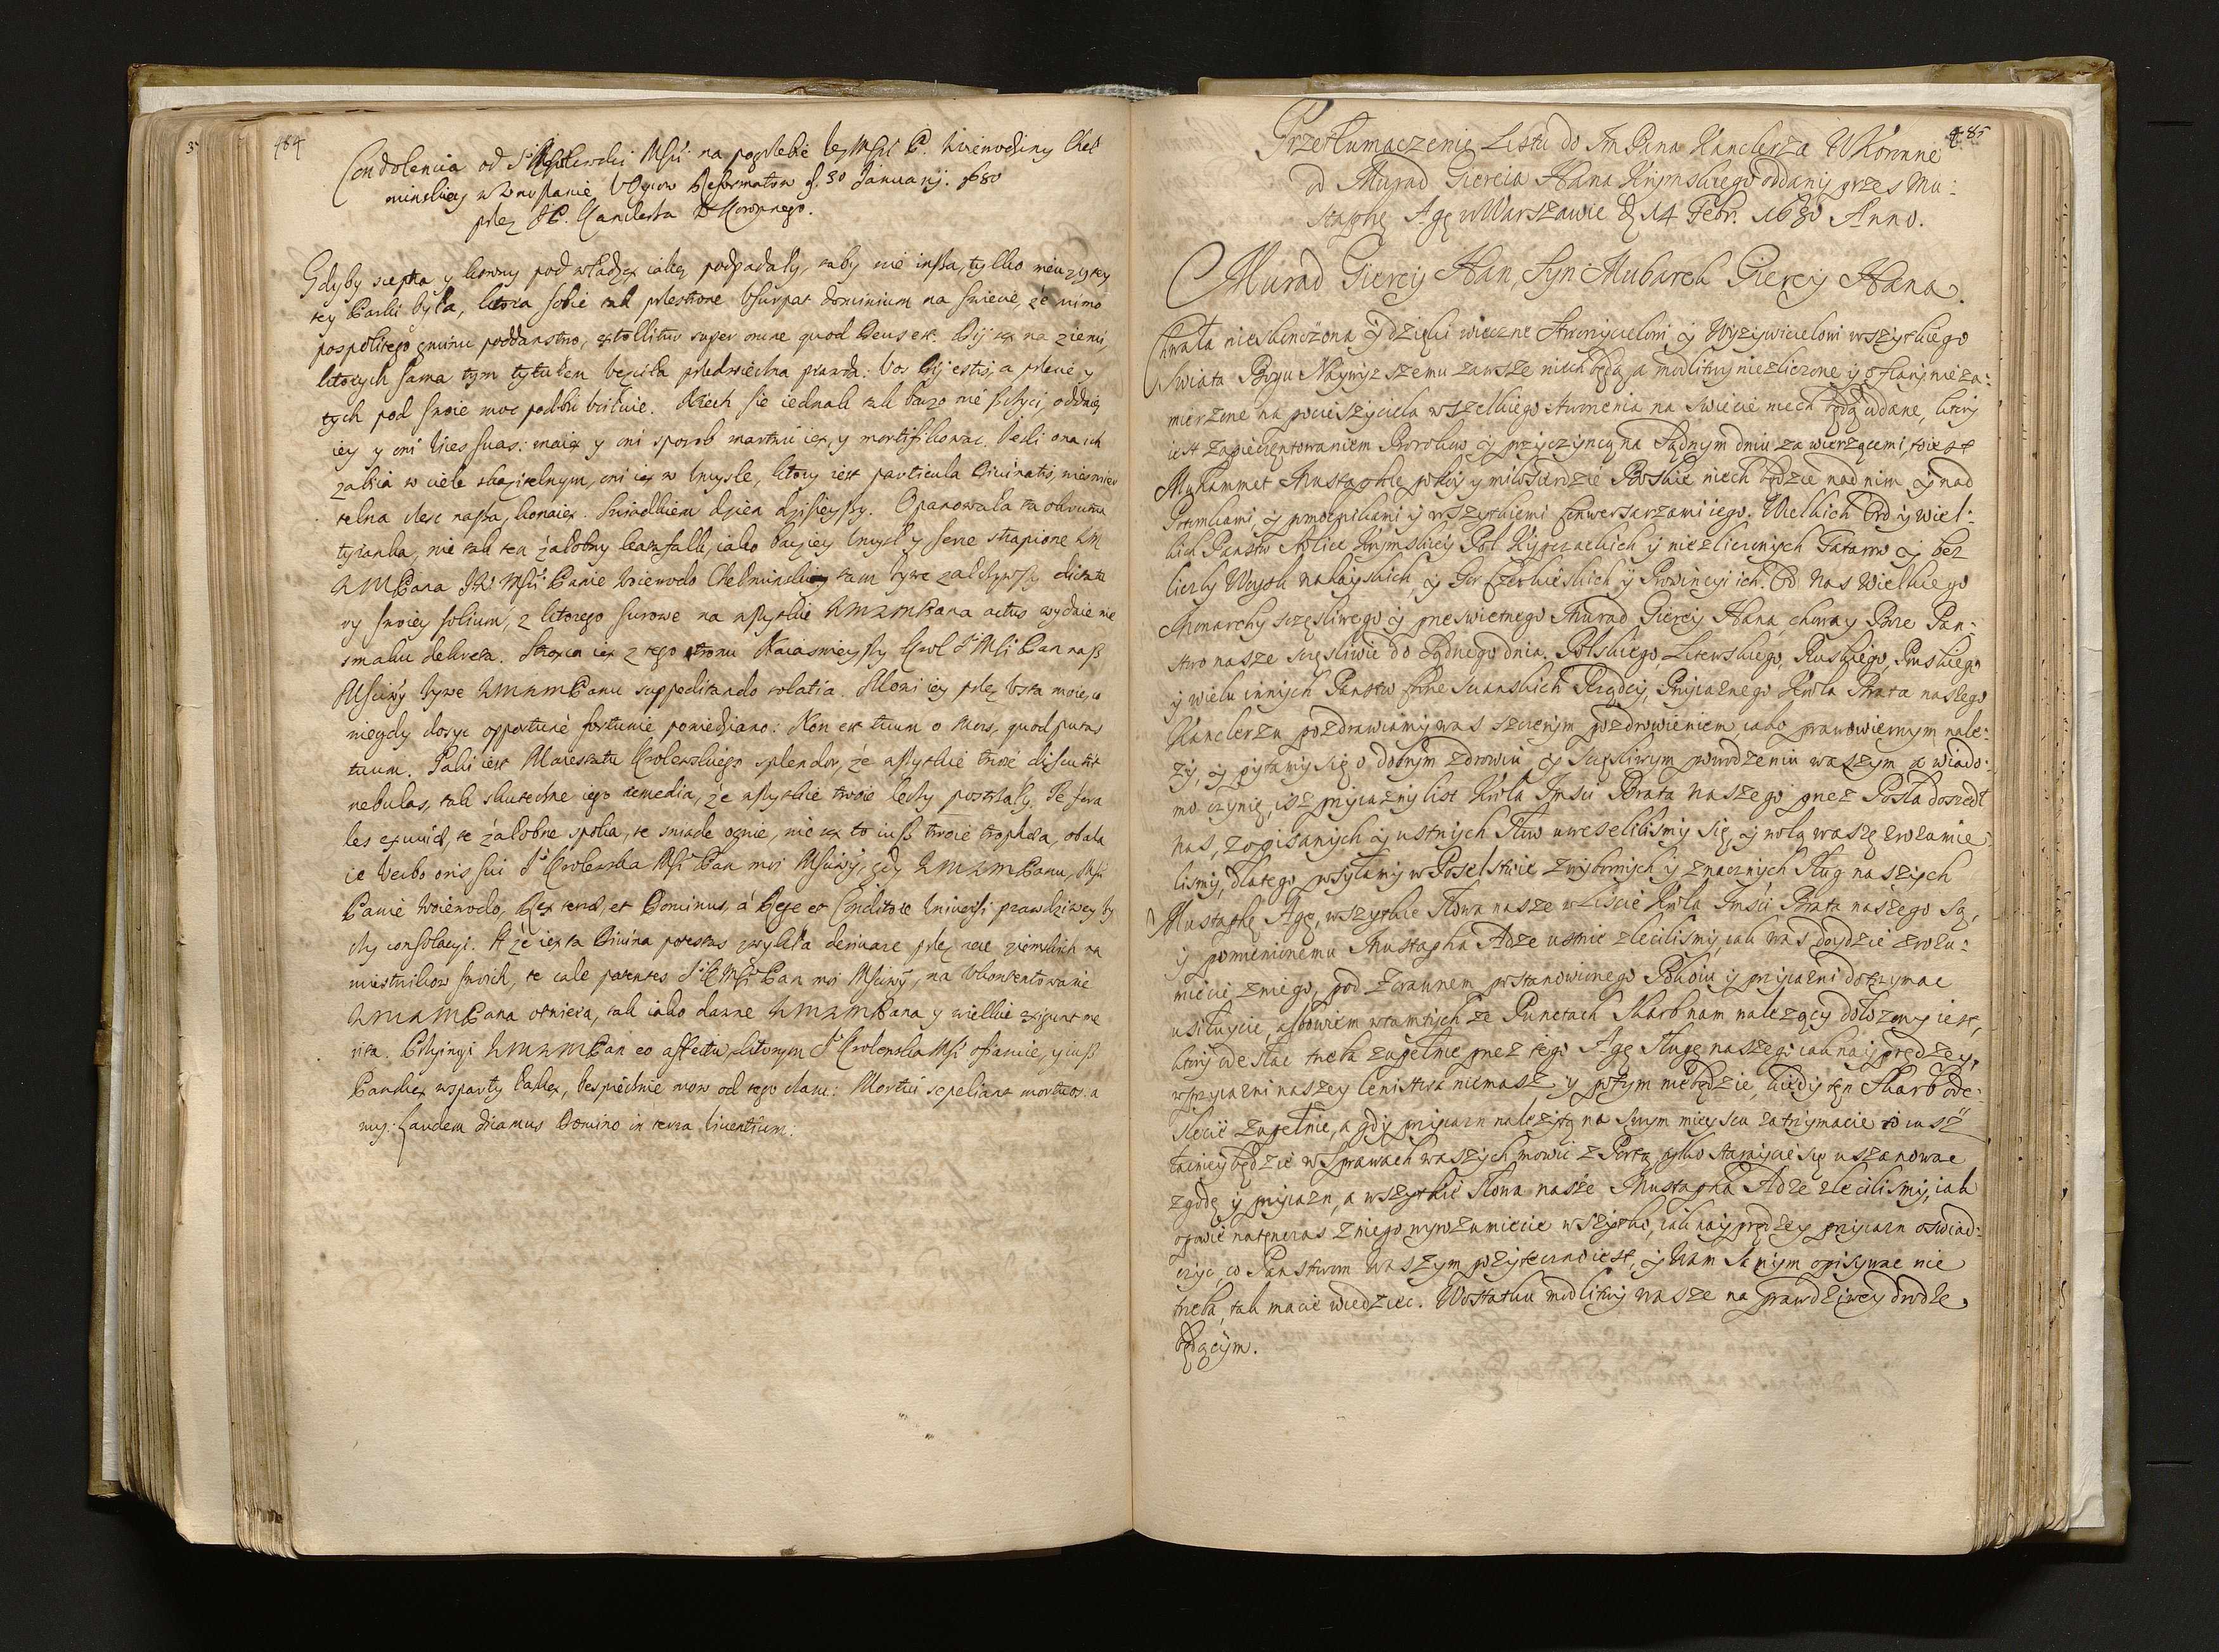 484
Condolencia od JKrolewskiej Msci na pogrzebie Jey Msci P. Woiewodziney Cheł
minskiey w Zmuspanie V Oycow Reformatow d. 30 Januarij. 1680
przez JP. Kanclerza W Koronnego.
Gdyby scepra y korony pod władzę iaką podpadały, taby nie insza, tylko nieuzytey
tey Parki była, ktora sobie tak przestrone Vsurpat dominium na swiecie, że mimo
pospolitego gminu poddanstwo, extollitur super omne quod Deus est. Dij są na ziemi,
ktorych sama tym tytułem uczciła przedwieczna prawda: Vos Dij estis, a przecie y
tych pod swoie moc podbić usiłuie. Niech sie iednak tak barzo nie szczyci, oddaią
iey y oni Vices suas: maią y oni sposob martwić ią, y mortifikować. Jesli ona ich
zabiia w ciele skazitelnym, oni ią w umysle, ktory iest particula Divinatis, niesmier
telna czesc nasza, konaią. Swiadkiem dzien dzisieyszy. Opanowała ta okrutna
tyranka, nie tak ten żałobny katafalk, iako barziey umysł y serce strapione Wm
WMPana JW Msci Panie Woiewodo Chełminski, tam żywe założywszy dictatu
ry swoiey solium, z ktorego surowe na wszytkie WMWMPana actus wydaie nie
smaku dekreta. Strąca ią z tego tronu Naiasnieyszy Krol J Msci Pan nasz
Msciwy, zywe WMWMPanu suppeditando solatia. Mowi iey przez Vsta moie, co
niegdy dosyc opportune fortunie powiedziano: Non est tuum o Mors, quod putas
tuum. Taki iest Maiestatu Krolewskiego splendor, że wszytkie twoie discutit
nebulas, tak skuteczne iego remedia, że wszytkie twoie lechy postrzały. Te fera
les exuvias, te żałobne spolia, te smiade ognie, nie są to iusz twoie trophea, obala
ie Verbo oris sui J Krolewska Msc Pan moi Msciwy, gdy WMWMPanu, Msci
Panie Woiewodo, Rex terrae, et Dominus, á Rege et Conditore Universi prawdziwey zy
czy consolacyi. A że ią ta Divina potestas zwykła derivare przez rece ziemskich na
miestnikow swoich, te całe patentes JK Msc Pan moi Msciwy, na Vkontentowanie
WMWMPana otwiera, tak iako dawne WMWMPana y wielkie exigunt me
rita. Przyimyi WMWMPan eo affectu, ktorym J Krolewska Msc ofiaruie, y iusz
Panską wsparty łaską, bespiecznie mow od tego czasu: Mortui sepeliant mortuos: a
my: Laudem dicamus Domino in terra Viventium.
485
Przetłumaczenie Listu do Jm Pana Kanclerza WKoronne
od Murad Giereia Hana Krymskiego oddany przes Mu:
staphę Agę w Warszawie d. 14 Febr. 1680 Anno.
Murad Gierey Han, Syn Mubarek Gierey Hana.
Chwała nieskonczona y dzięki wieczne Stworzycielowi y Wyżywicielowi wszytkiego
Swiata Bogu Naywyzszemu zawsze niech będą, a modlitwy niezliczone y ofiary nieza:
mierzone na pocieszyciela wszelkiego stworzenia na swiecie niech będą oddane, ktory
iest zapieczętowaniem Prorokow y przyczyncą na Sądnym dniu za wierzącemi, to iest
Muhammet Mustaphe, pokoy y miłosierdzie Boskie niech będzie nad nim y nad
Potomkami, y pomocnikami y wszytkiemi konwersarzami iego. Wielkich Ord y wiel:
kich Panstw Stolice Krymskiey Pol Kypczackich y niezliczonych Tatarow y bez
liczby Woysk nahayskich, y Gor Czerkieskich y Prowincyi ich. Od Nas Wielkiego
Monarchy szczęsliwego y przeswietnego Murad Gierey Hana, choway Boże Pan:
stwo nasze szczęsliwie do Sądnego dnia. Polskiego, Litewskiego, Ruskiego, Pruskiego
y wielu innych Panstw chrescianskich Rządcy, Przyiaznego Krola Brata naszego
Kanclerzu pozdrawiamy was szczerym pozdrowieniem iako prawowiernym nale:
ży, y pytamy się o dobrym zdrowiu y Szczęsliwym powodzeniu waszym, a wiado:
mo czynię, isz przyiazny list Krola Jmsci Brata Naszego przez Posła doszedł
nas, z opisanych y ustnych Słow uweselilismy się, y wolą waszę zrozumie:
lismy, dlatego posyłamy w Poselstwie z wybornych y znacznych Sług naszych
Mustaphę Agę, wszytkie Słowa nasze w Liscie Krola Jmsci Brata naszego są,
y pomienionemu Mustapha Adze ustnie zlecilismy, iak Was doydzie zrozu:
miecie z niego, pod Żorawnem postanowionego Pokoiu y przyiazni dotrzymać
usiłuycie, albowiem w tamtych że Punctach Skarb nam należący dołożony iest,
ktory odesłac trzeba zupełnie przez tego Agę Sługę naszego iak nayprędzey,
w przyiazni naszey lenistwa niemasz y potym nie będzie, kiedy ten Skarb ode:
slecie zupełnie, a gdy przyiazn należytą na swym mieyscu zatrzymacie to iusz
łacniey będzie w Sprawach waszych mowić z Portą, tylko staraycie się uszanowac
zgodę y przyiazn, a wszytkie Słowa nasze Mustapha Adze zlecilismy, iak
opowie natenczas z niego wyrozumiecie wszytko, iak nayprędzey przyiazn oswiad:
czyc co Panstwom Waszym pożyteczno iest, y Wam samym opisywac nie
trzeba, tak macie wiedziec. W ostatku modlitwy nasze na prawdziwey drodze
będącym.